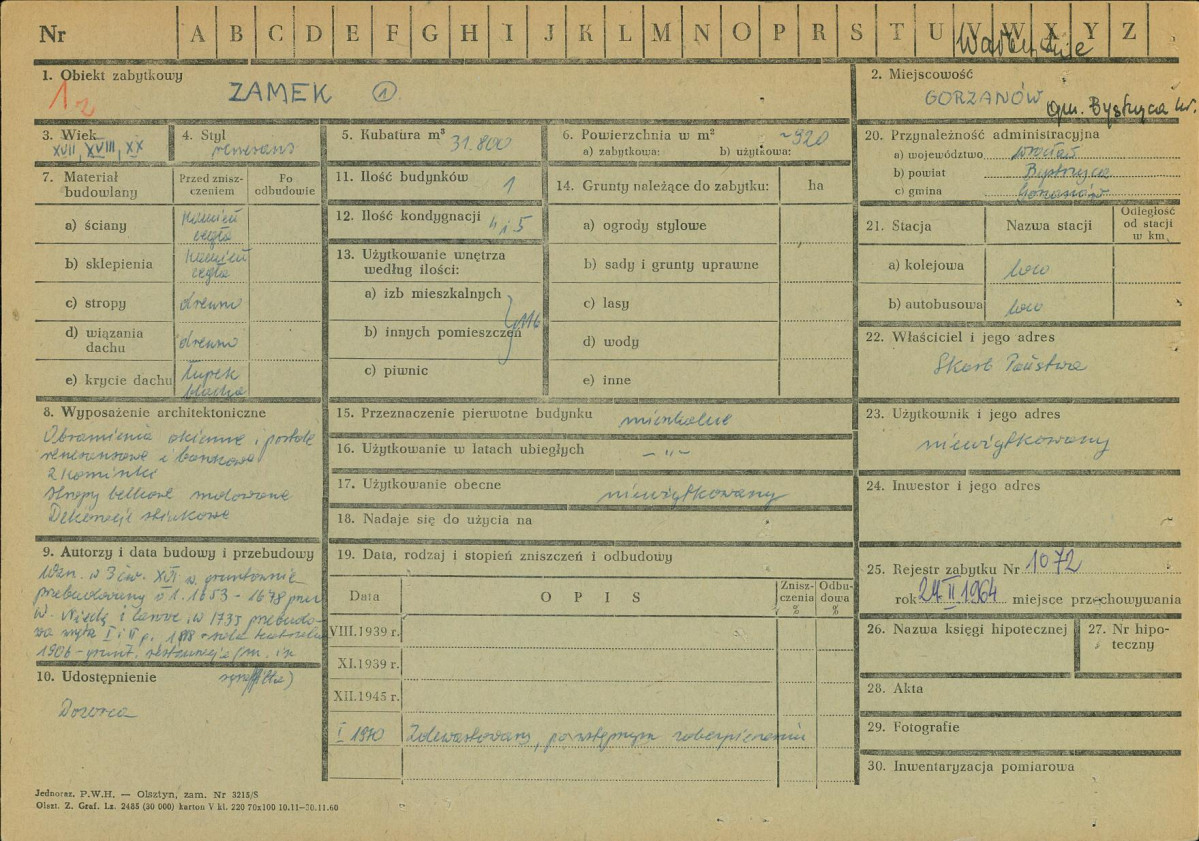 Nr A B C D E F G H I J K L M N O P R S T U V W X Y Z
1. Obiekt zabytkowy
ZAMEK 1
2. Miejscowość
GORZANÓW gm. Bystrzyca Kł.
3. Wiek
XVII, XVIII, XX
4. Styl
renesans
5. Kubatura m³ 31.800
6. Powierzchnia w m² ~920
a) zabytkowa: b) użytkowa:
7. Materiał budowlany
Przed zniszczeniem
Po odbudowie
a) ściany
kamień
cegła
b) sklepienia
kamień
cegła
c) stropy drewno
d) wiązania dachu drewno
e) krycie dachu
łupek
blacha
8. Wyposażenie architektoniczne
Obramienia okienne i portale
renesansowe i barokowe
2 kominki
stropy belkowe malowane
Dekoracje stiukowe
9. Autorzy i data budowy i przebudowy
Wzn. w 3 ćw. XVI w. gruntownie
przebudowany 1653 - 1678 przez
10. Udostępnienie
Dozorca
11. Ilość budynków 1
12. Ilość kondygnacji
13. Użytkowanie wnętrza według ilości:
a) izb mieszkalnych
b) innych pomieszczeń 116
c) piwnic
14. Grunty należące do zabytku: ha
a) ogrody stylowe
b) sady i grunty uprawne
c) lasy
d) wody
e) inne
15. Przeznaczenie pierwotne budynku mieszkalne
16. Użytkowanie w latach ubiegłych — „ —
17. Użytkowanie obecne nieużytkowany
18. Nadaje się do użycia na
19. Data, rodzaj i stopień zniszczeń i odbudowy
Data
OPIS
Zniszczenia %
Odbudowa %
VIII.1939 r.
XI.1939 r.
XII.1945 r.
I 1970 Zdewastowany, po wstępnym zabezpieczeniu
20. Przynależność administracyjna
a) województwo Wrocław
b) powiat Bystrzyca
c) gmina Gorzanów
21. Stacja
Nazwa stacji
Odległość od stacji w km
a) kolejowa loco
b) autobusowa loco
22. Właściciel i jego adres
Skarb Państwa
23. Użytkownik i jego adres
nieużytkowany
24. Inwestor i jego adres
25. Rejestr zabytku Nr 1072
rok 24 II 1964 miejsce przechowywania
26. Nazwa księgi hipotecznej
27. Nr hipoteczny
28. Akta
29. Fotografie
30. Inwentaryzacja pomiarowa
Jednoraz. P.W.H. — Olsztyn, zam. Nr 3215/S
Olszt. Z. Graf. Lz. 2485 (30 000) karton V kl. 220 70x100 10.11—30.11.60